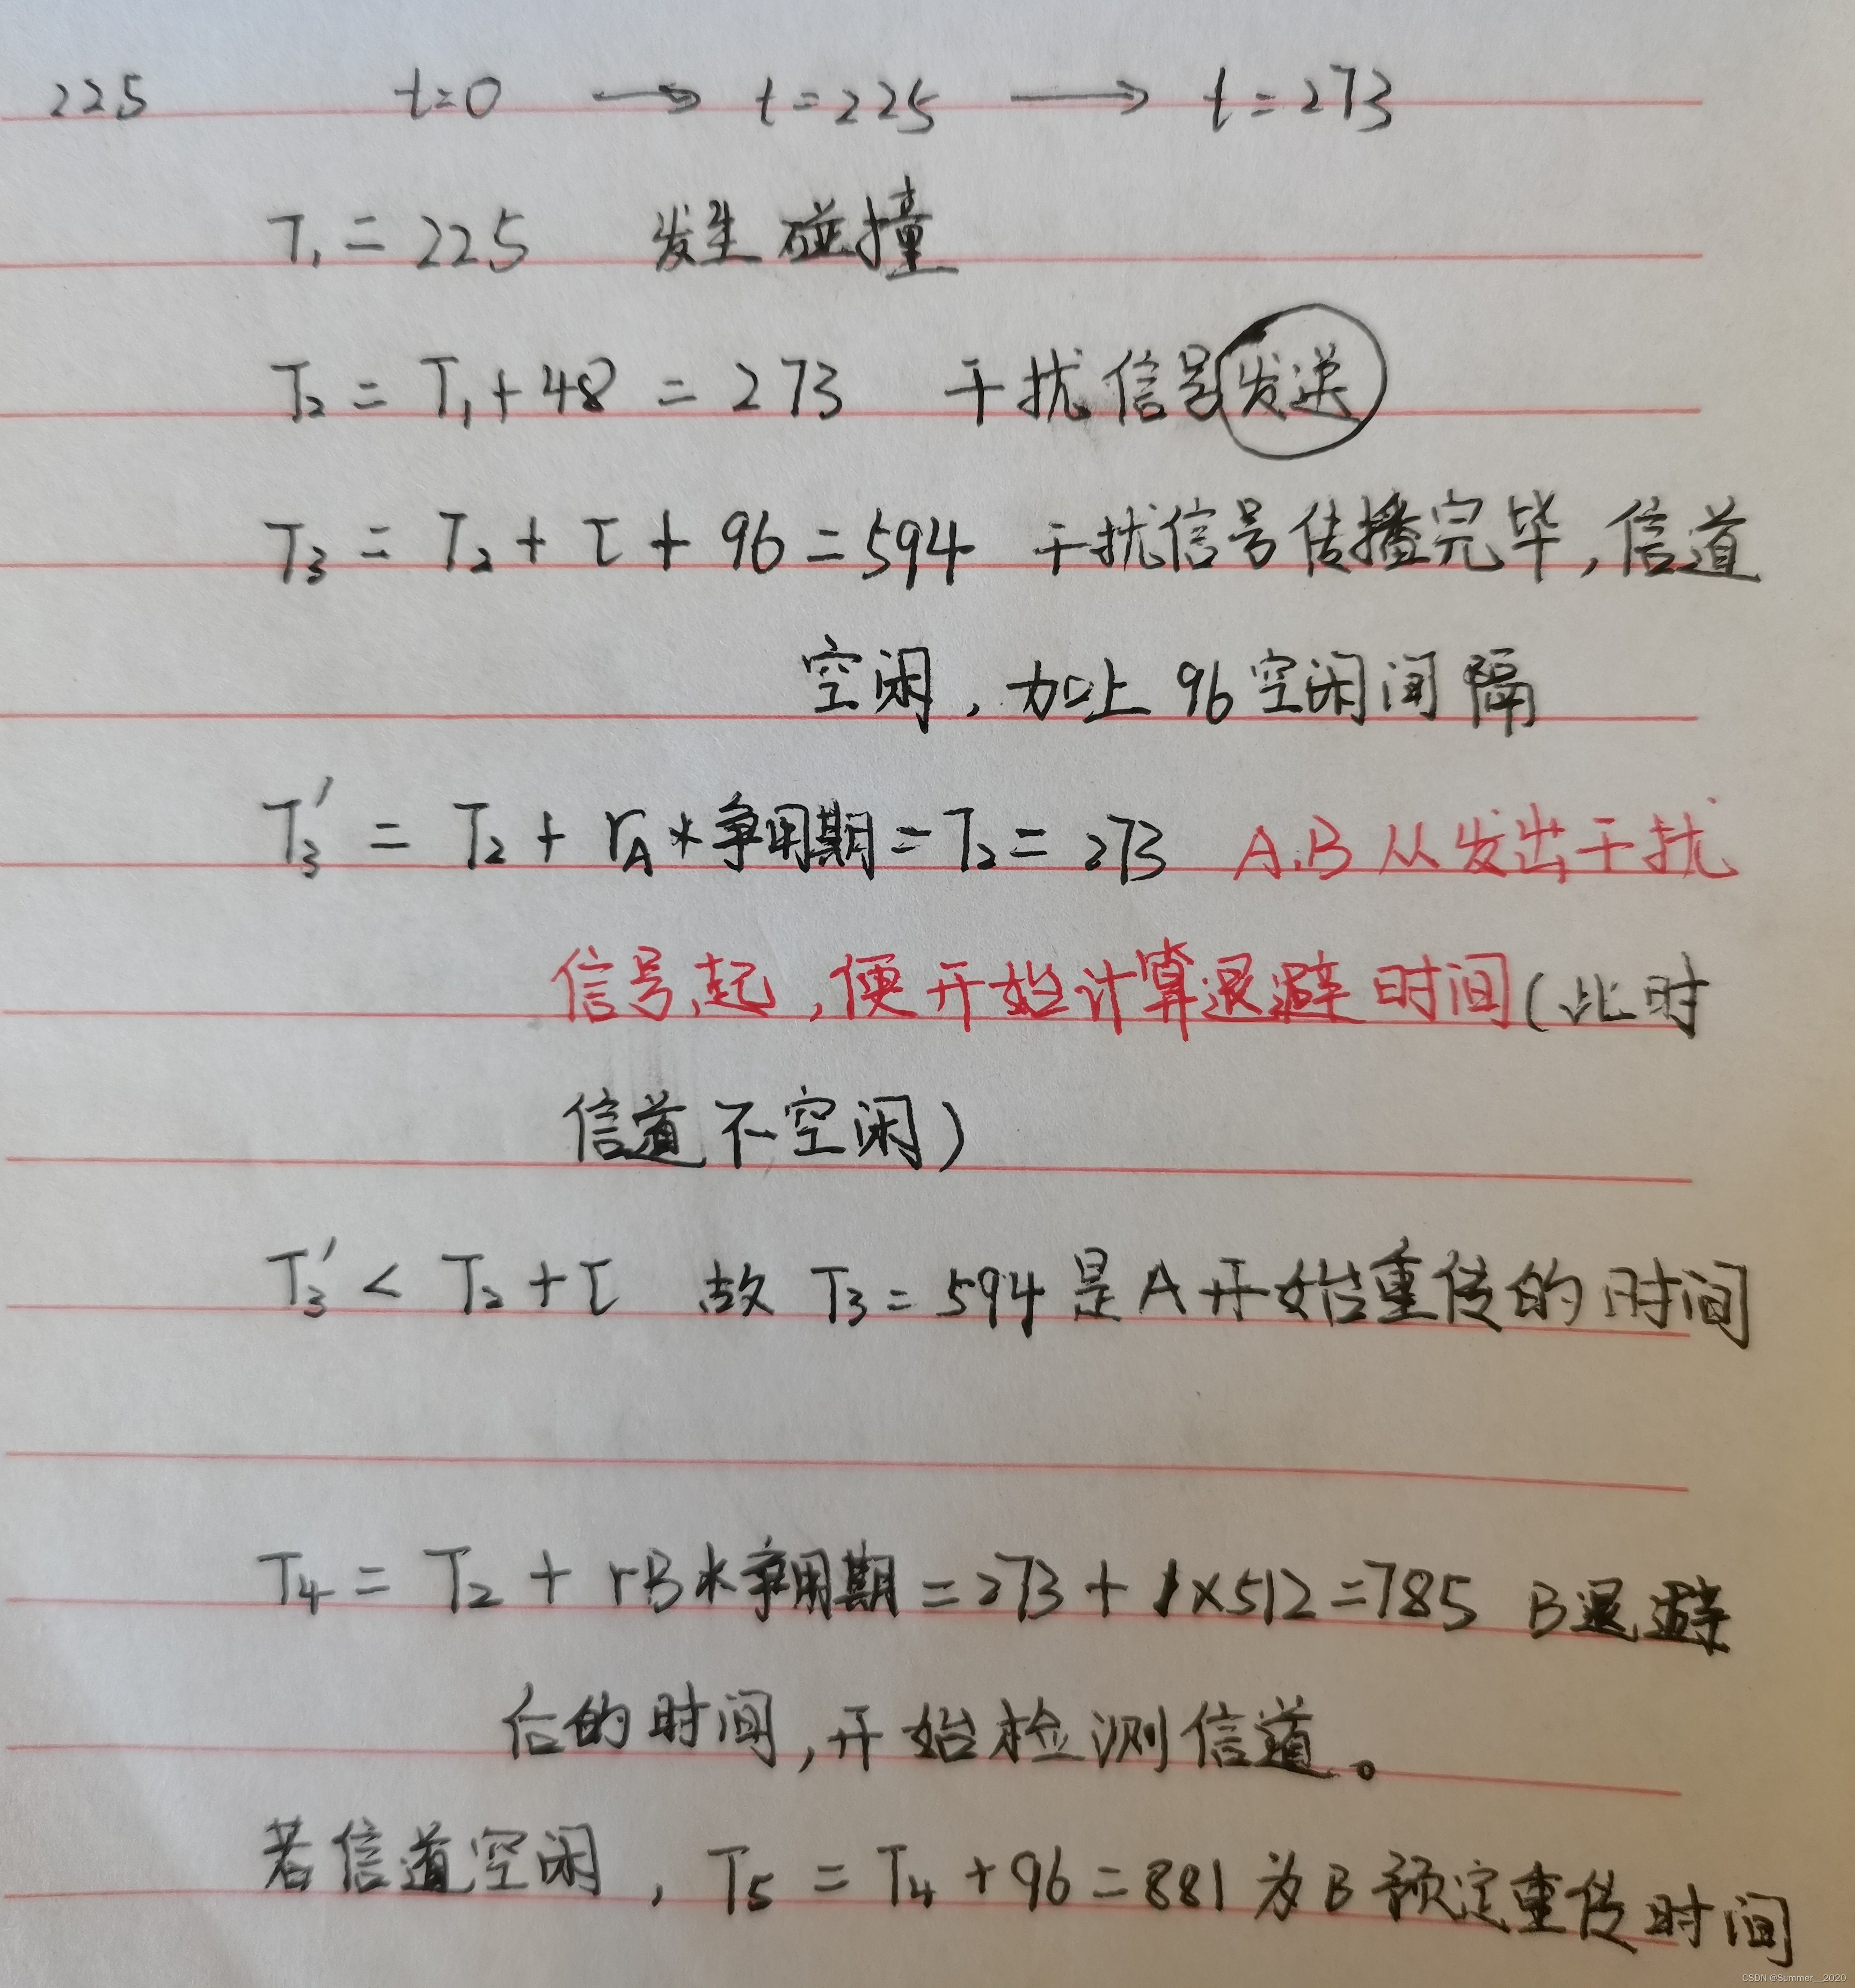 225 t=0 → t=225 → t=273
T₁ = 225 发生碰撞
T₂ = T₁+48 = 273 干扰信号发送
T₃ = T₂ + τ + 96 = 594 干扰信号传播完毕,信道
空闲,加上96空闲间隔
T₃' = T₂ + rA*争用期=T₂= 273 A.B从发出干扰
信号起,便开始计算退避时间(此时
信道不空闲)
T₃' < T₂ + τ 故 T₃ = 594 是A开始重传的时间
T₄ = T₂ + rB*争用期 = 273 + 1×512 = 785 B退避
后的时间,开始检测信道。
若信道空闲,T₅ = T₄ + 96 = 881 为B预定重传时间
CSDN @Summer__2020